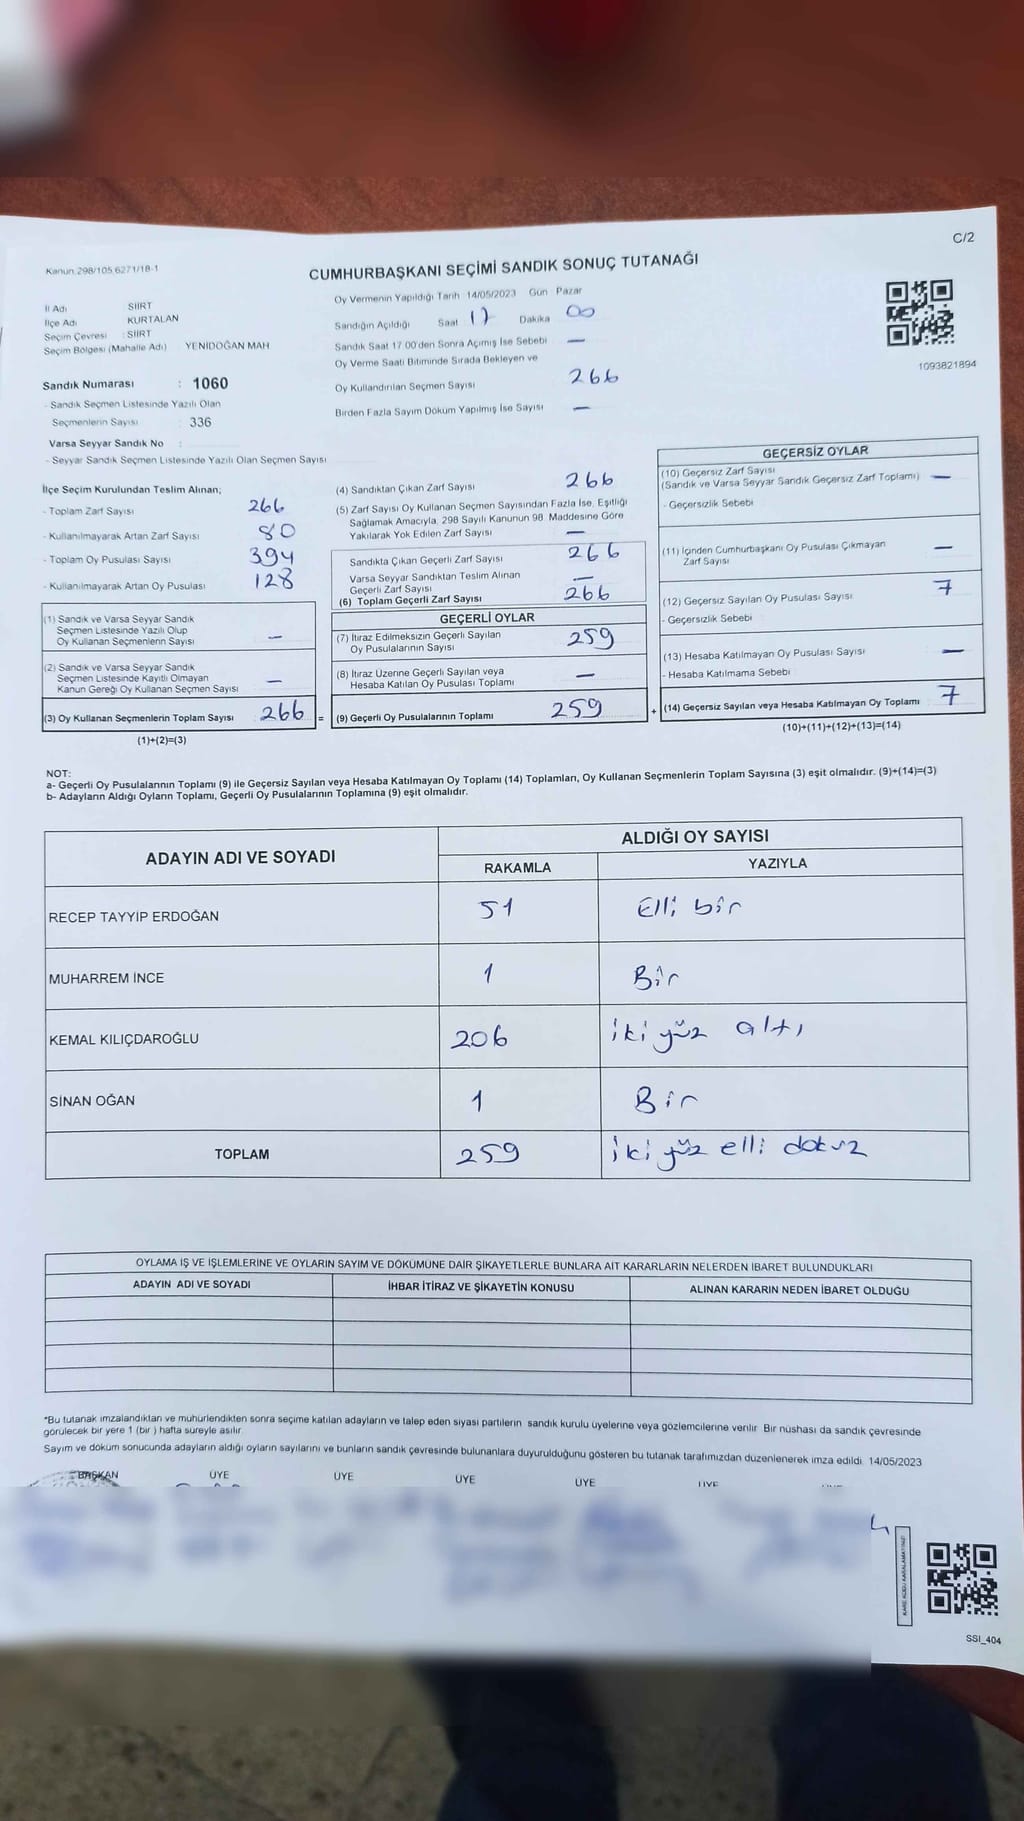 C/2
Kanun.298/105,6271/18-1
CUMHURBAŞKANI SEÇİMİ SANDIK SONUÇ TUTANAĞI
İl Adı SİİRT
İlçe Adı KURTALAN
Seçim Çevresi : SİİRT
Seçim Bölgesi (Mahalle Adı) YENİDOĞAN MAH
Sandık Numarası : 1060
- Sandık Seçmen Listesinde Yazılı Olan
Seçmenlerin Sayısı 336
Varsa Seyyar Sandık No :
- Seyyar Sandık Seçmen Listesinde Yazılı Olan Seçmen Sayısı
Oy Vermenin Yapıldığı Tarih 14/05/2023 Gün Pazar
Sandığın Açıldığı Saat 17 Dakika 00
Sandık Saat 17:00'den Sonra Açımış İse Sebebi —
Oy Verme Saati Bitiminde Sırada Bekleyen ve
Oy Kullandırılan Seçmen Sayısı 266
Birden Fazla Sayım Döküm Yapılmış İse Sayısı —
1093821894
İlçe Seçim Kurulundan Teslim Alınan;
- Toplam Zarf Sayısı 266
- Kullanılmayarak Artan Zarf Sayısı 80
- Toplam Oy Pusulası Sayısı 394
- Kullanılmayarak Artan Oy Pusulası 128
(1) Sandık ve Varsa Seyyar Sandık
Seçmen Listesinde Yazılı Olup
Oy Kullanan Seçmenlerin Sayısı —
(2) Sandık ve Varsa Seyyar Sandık
Seçmen Listesinde Kayıtlı Olmayan
Kanun Gereği Oy Kullanan Seçmen Sayısı —
(3) Oy Kullanan Seçmenlerin Toplam Sayısı 266 =
(1)+(2)=(3)
(4) Sandıktan Çıkan Zarf Sayısı 266
(5) Zarf Sayısı Oy Kullanan Seçmen Sayısından Fazla İse, Eşitliği
Sağlamak Amacıyla, 298 Sayılı Kanunun 98. Maddesine Göre
Yakılarak Yok Edilen Zarf Sayısı —
Sandıkta Çıkan Geçerli Zarf Sayısı 266
Varsa Seyyar Sandıktan Teslim Alınan
Geçerli Zarf Sayısı —
(6) Toplam Geçerli Zarf Sayısı 266
GEÇERLİ OYLAR
(7) İtiraz Edilmeksizin Geçerli Sayılan
Oy Pusulalarının Sayısı 259
(8) İtiraz Üzerine Geçerli Sayılan veya
Hesaba Katılan Oy Pusulası Toplamı —
(9) Geçerli Oy Pusulalarının Toplamı 259 +
GEÇERSİZ OYLAR
(10) Geçersiz Zarf Sayısı
(Sandık ve Varsa Seyyar Sandık Geçersiz Zarf Toplamı) —
- Geçersizlik Sebebi
(11) İçinden Cumhurbaşkanı Oy Pusulası Çıkmayan
Zarf Sayısı —
(12) Geçersiz Sayılan Oy Pusulası Sayısı 7
- Geçersizlik Sebebi
(13) Hesaba Katılmayan Oy Pusulası Sayısı —
- Hesaba Katılmama Sebebi
(14) Geçersiz Sayılan veya Hesaba Katılmayan Oy Toplamı 7
(10)+(11)+(12)+(13)=(14)
NOT:
a- Geçerli Oy Pusulalarının Toplamı (9) ile Geçersiz Sayılan veya Hesaba Katılmayan Oy Toplamı (14) Toplamları, Oy Kullanan Seçmenlerin Toplam Sayısına (3) eşit olmalıdır. (9)+(14)=(3)
b- Adayların Aldığı Oyların Toplamı, Geçerli Oy Pusulalarının Toplamına (9) eşit olmalıdır.
ADAYIN ADI VE SOYADI ALDIĞI OY SAYISI
RAKAMLA YAZIYLA
RECEP TAYYİP ERDOĞAN 51 Elli bir
MUHARREM İNCE 1 Bir
KEMAL KILIÇDAROĞLU 206 iki yüz altı
SİNAN OĞAN 1 Bir
TOPLAM 259 iki yüz elli dokuz
OYLAMA İŞ VE İŞLEMLERİNE VE OYLARIN SAYIM VE DÖKÜMÜNE DAİR ŞİKAYETLERLE BUNLARA AİT KARARLARIN NELERDEN İBARET BULUNDUKLARI
ADAYIN ADI VE SOYADI İHBAR İTİRAZ VE ŞİKAYETİN KONUSU ALINAN KARARIN NEDEN İBARET OLDUĞU
*Bu tutanak imzalandıktan ve mühürlendikten sonra seçime katılan adayların ve talep eden siyasi partilerin sandık kurulu üyelerine veya gözlemcilerine verilir Bir nüshası da sandık çevresinde
görülecek bir yere 1 (bir ) hafta süreyle asılır.
Sayım ve döküm sonucunda adayların aldığı oyların sayılarını ve bunların sandık çevresinde bulunanlara duyurulduğunu gösteren bu tutanak tarafımızdan düzenlenerek imza edildi. 14/05/2023
BAŞKAN ÜYE ÜYE ÜYE ÜYE ÜYE
KARE KODU KARALAMAYINIZ!
SSI_404